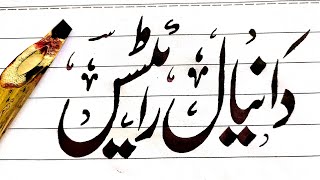 دَانیال رائٹس